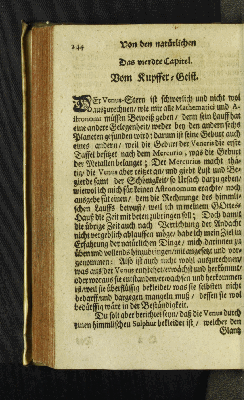 244 Von den natürlichen
Das vierdte Capitel.
Vom Kupffer-Geist.
DEr Venus-Stern ist schwerlich und nicht wol
außzurechnen/ wie mir alle Mathematici und A-
stronomi müssen Beweiß geben / denn sein Lauff hat
eine andere Gelegenheit/ weder bey den andern sechs
Planeten gefunden wird: darum ist seine Geburt auch
eines andern / weil die Geburt der Veneris die erste
Taffel besitzt nach dem Mercurio, was die Geburt
der Metallen belanget: Der Mercurius macht thä-
tig/ die Venus aber reitzet an/ und giebt Lust und Be-
gierde samt der Schönigkeit/ so Ursach darzu geben/
wiewol ich mich für keinen Astronomum erachte/ noch
außgebe für einen / dem die Rechnunge des himmli-
schen Lauffs bewust / weil ich in meinem GOttes-
Hauß die Zeit mit beten zubringen soll; Doch damit
die übrige Zeit auch nach Verrichtung der Andacht
nicht vergeblich ablauffen möge/ habe ich mein Ziel in
Erfahrung der natürlichen Dinge / mich darinnen zu
üben und vollends hinzubringen/ mir angesetzt und vor-
genommen: Also ist auch nicht wohl außzurechnen/
was aus der Venus entstehet/ erwächst und herkommt/
oder woraus sie entstanden/ erwachsen und herkommen
ist/ weil sie überflüssig bekleidet/ was sie selbsten nicht
bedarff/ und dargegen mangeln muß / dessen sie wol
bedürfftig wäre in der Beständigkeit.
Du solt aber berichtet seyn/ daß die Venus durch
einen himmlischen Sulphur bekleidet ist / welcher den
Glantz